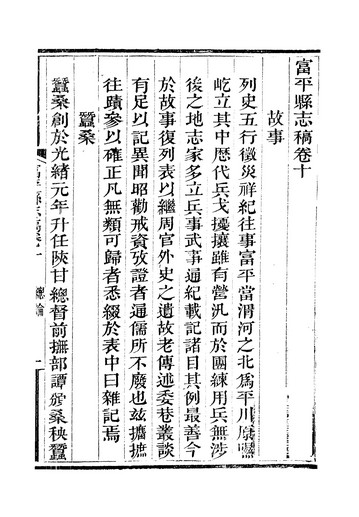 富平縣志稿卷十
故事
列史五行徵災祥紀往事富平當渭河之北爲平川原隰
屹立其中歷代兵戈擾攘雖有營汛而於團練用兵無涉
後之地志家多立兵事武事通紀載記諸目其例最善今
於故事復列表以繼周官外史之遺故老傳述委巷叢談
有足以記異聞昭勸戒資攷證者通儒所不廢也玆攟摭
往蹟參以確正凡無類可歸者悉綴於表中曰雜記焉
蠶桑
蠶桑創於光緒元年升任陝甘總督前撫部譚頒桑秧蠶
富平縣志稿卷十
總論
一